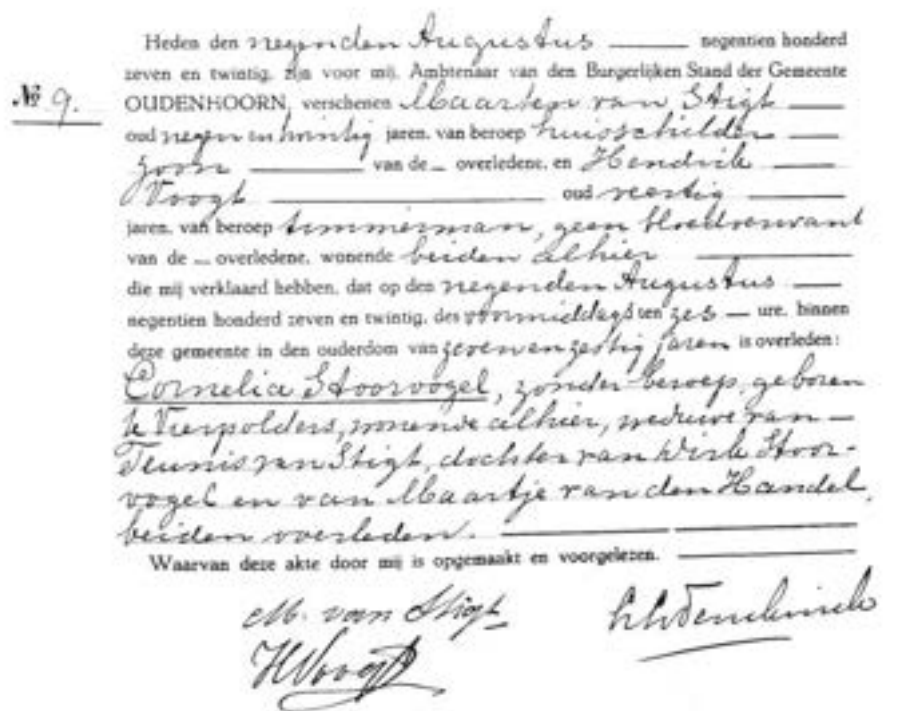 Heden den negenden Augustus negentien honderd
zeven en twintig, zijn voor mij, Ambtenaar van den Burgerlijken Stand der Gemeente
№ 9. OUDENHOORN, verschenen Maarten van Stigt
oud negen en twintig jaren, van beroep huisschilder
zoon van de overledene, en Hendrik
Voogt oud veertig
jaren, van beroep timmerman, geen bloedverwant
van de overledene, wonende beiden alhier
die mij verklaard hebben, dat op den negenden Augustus
negentien honderd zeven en twintig, des voormiddags ten zes ure, binnen
deze gemeente in den ouderdom van zeven en zestig jaren is overleden:
Cornelia Stoorvogel, zonder beroep, geboren
te Vierpolders, wonende alhier, weduwe van
Teunis van Stigt, dochter van Dirk Stoor-
vogel en van Maartje van den Handel,
beiden overleden.
Waarvan deze akte door mij is opgemaakt en voorgelezen.
M. van Stigt
HVoogt